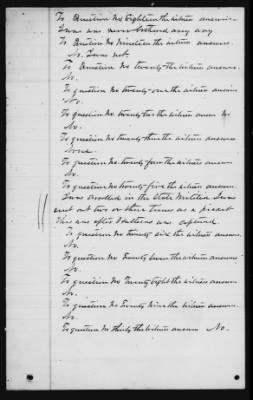 To Question No Eighteen the witness answers.
I was never bothered any way
To Question No Nineteen the witness answers.
No. I was not.
To Question No twenty the witness answers.
No.
To question No twenty-one the witness answers
No.
To question No twenty two the witness answers No
No.
To question No twenty three the witness answers
None.
To question No twenty four the witness answers
No.
To question No twenty-five the witness answers.
I was enrolled in the State Militia I was
sent out two or three times as a picket
This was after I was captured.
To question No twenty six the witness answers.
No.
To question No Twenty Seven the witness answers.
No.
To question No Twenty Eight the witness answers
No.
To question No Twenty Nine the witness answers.
No.
To question No thirty the witness answers No.